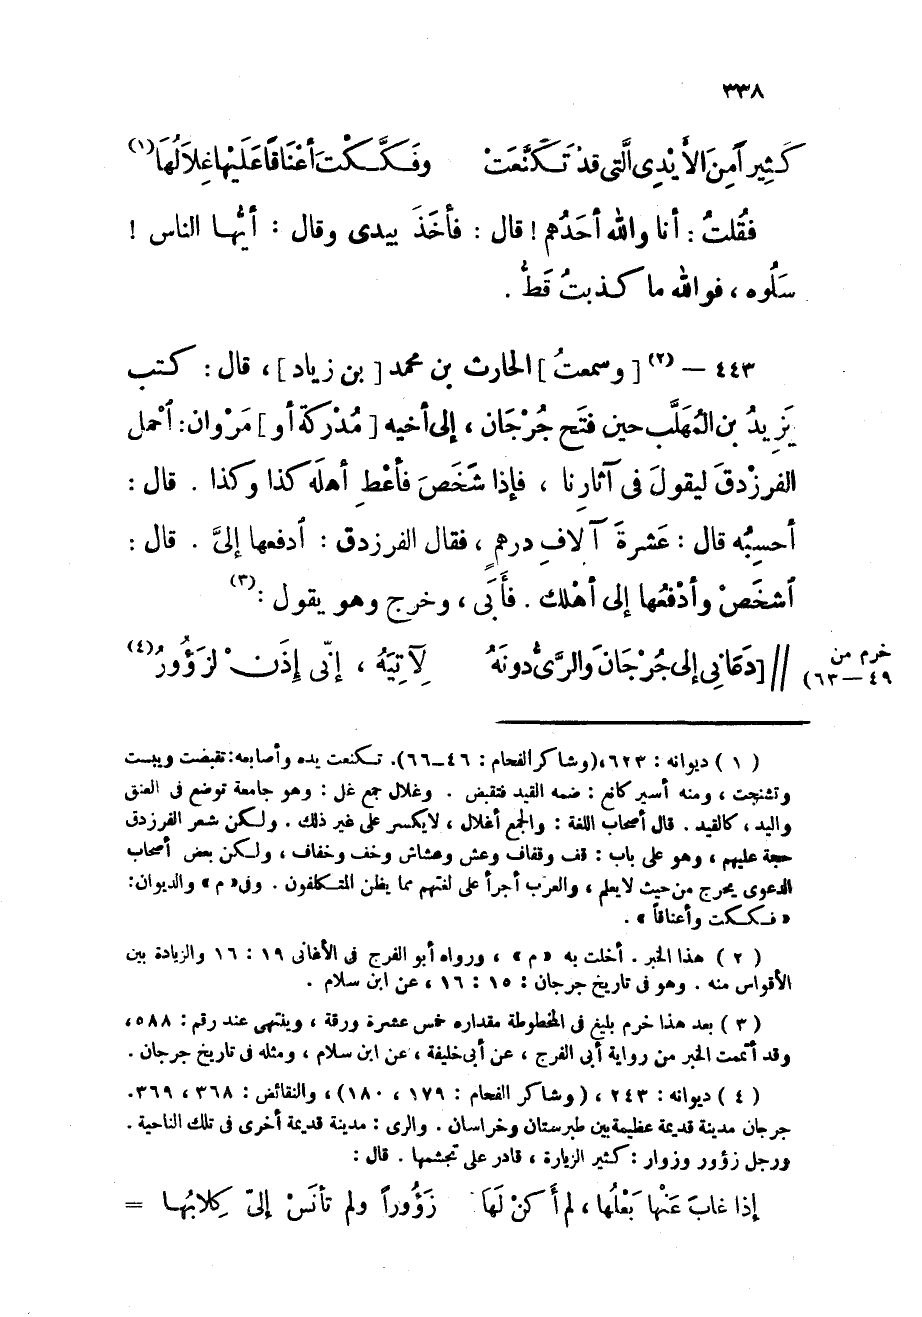 ٣٣٨
كَثِيراً مِنَ الأَيْدِى الَّتى قدْ تَكَنَّعَتْ وفَكَّكْتَ أعْنَاقًا عَلَيْها غِلَالُهَا (١)
فقُلتُ : أنا والله أحَدُهم ! قال : فأخَذَ بيدى وقال : أيُّها الناس !
سَلُوه ، فوالله ما كذبتُ قَطُّ .
٤٤٣ – (٢) [ وسمعتُ ] الحارث بن محمد [ بن زياد ] ، قال : كتب
يَزِيدُ بن المُهَلَّب حين فتَح جُرْجَان ، إلى أخيه [ مُدْرِكَة أو ] مَرْوان : ٱحْمل
الفرزدقَ ليقولَ فى آثارِنا ، فإذا شَخَصَ فأعْطِ أهلَه كذا وكذا . قال :
أحسِبُه قال : عَشرةَ آلافِ درهمٍ ، فقال الفرزدق : ٱدفعها إلىَّ . قال :
ٱشخَصْ وأدْفَعُها إلى أهْلك . فأَبَى ، وخرج وهو يقول : (٣)
// [ دَعَانِي إلى جُرْجَانَ والرَّىُّ دونَهُ لِآتِيَهُ ، إنّى إذَن لزَؤُورُ (٤)
خرم من
٤٩ – ٦٣)
( ١ ) ديوانه : ٦٢٣ ، (وشاكر الفحام : ٤٦–٦٦). تكنعت يده وأصابعه : تقبضت ويبست
وتشنجت ، ومنه أسير كانع : ضمه القيد فتقبض . وغلال جمع غل : وهو جامعة توضع فى العنق
واليد ، كالقيد . قال أصحاب اللغة : والجمع أغلال ، لا يكسر على غير ذلك . ولكن شعر الفرزدق
حجة عليهم ، وهو على باب : قف وقفاف وعش وعشاش وخف وخفاف ، ولكن بعض أصحاب
الدعوى يحرج من حيث لا يعلم ، والعرب أجرأ على لغتهم مما يظن المتكلفون . وفى « م » والديوان :
« فككت وأعناقاً » .
( ٢ ) هذا الخبر . أخلت به « م » ، ورواه أبو الفرج فى الأغانى ١٩ : ١٦ والزيادة بين
الأقواس منه . وهو فى تاريخ جرجان : ١٥ : ١٦ ، عن ابن سلام .
( ٣ ) بعد هذا خرم بليغ فى المخطوطة مقداره خمس عشرة ورقة ، وينتهى عند رقم : ٥٨٨ ،
وقد أتممت الخبر من رواية أبى الفرج ، عن أبى خليفة ، عن ابن سلام ، ومثله فى تاريخ جرجان .
( ٤ ) ديوانه : ٢٤٣ ، ( وشاكر الفحام : ١٧٩ ، ١٨٠ ) ، والنقائض : ٣٦٨ ، ٣٦٩.
جرجان مدينة قديمة عظيمة بين طبرستان وخراسان . والرى : مدينة قديمة أخرى فى تلك الناحية .
ورجل زؤور وزوار : كثير الزيارة ، قادر على تجشمها . قال :
إذا غابَ عَنْها بَعْلُها ، لم أَكنْ لَهَا زَؤُوراً ولم تأنَسْ إلىّ كِلابُهَا =